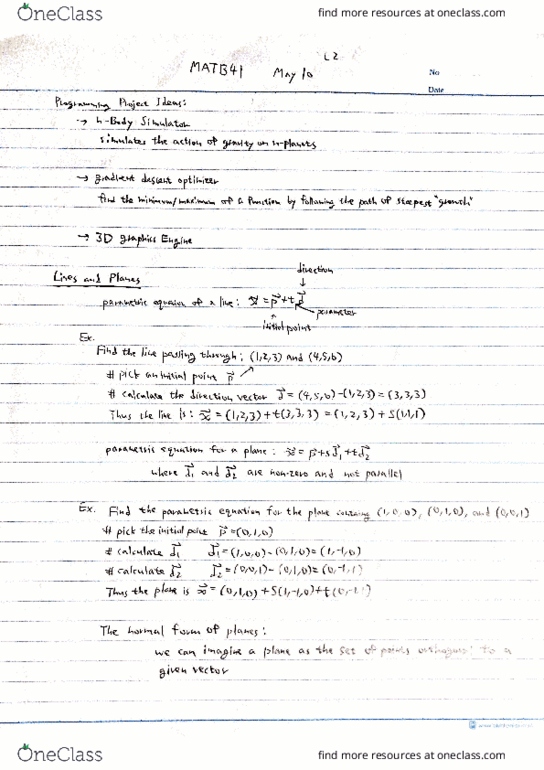 OneClass find more resources at oneclass.com
L2
MATB41 May 10
No
Date
Programming Project Ideas:
→ n-Body Simulator
simulates the action of gravity on n-planets
→ gradient descent optimizer
find the minimum/maximum of a function by following the path of steepest "growth"
→ 3D graphics Engine
Lines and Planes
direction
↓
parametric equation of a line: x⃗ = p⃗ + t d⃗
parameter
↑
initial point
Ex.
Find the line passing through; (1,2,3) and (4,5,6)
# pick an initial point p⃗
# calculate the direction vector d⃗ = (4,5,6)-(1,2,3) = (3,3,3)
Thus the line is: x⃗ = (1,2,3)+t(3,3,3) = (1,2,3)+S(1,1,1)
parametric equation for a plane: x⃗ = p⃗+sd⃗1+td⃗2
where d⃗1 and d⃗2 are non-zero and not parallel
Ex. Find the parametric equation for the plane containing (1,0,0), (0,1,0), and (0,0,1)
# pick the initial point p⃗=(0,1,0)
# calculate d⃗1 d⃗1=(1,0,0)-(0,1,0)=(1,-1,0)
# calculate d⃗2 d⃗2=(0,0,1)-(0,1,0)=(0,-1,1)
Thus the plane is x⃗=(0,1,0)+S(1,-1,0)+t(0,-1,1)
The normal form of planes:
we can imagine a plane as the set of points orthogonal to a
given vector
OneClass find more resources at oneclass.com